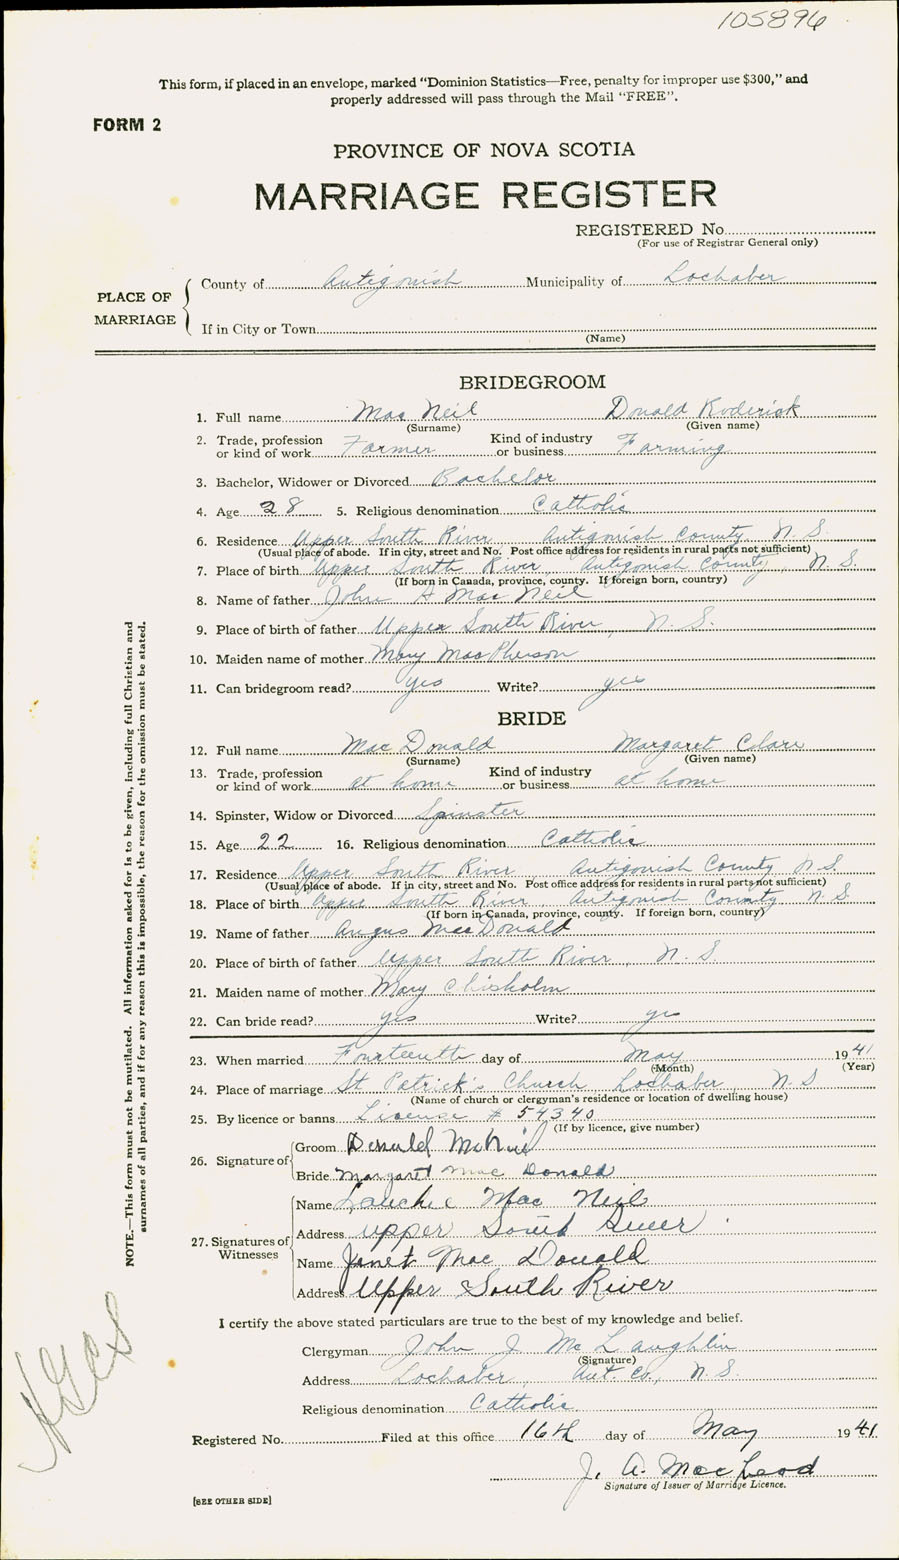 105896
This form, if placed in an envelope, marked "Dominion Statistics—Free, penalty for improper use $300," and
properly addressed will pass through the Mail "FREE".
FORM 2
PROVINCE OF NOVA SCOTIA
MARRIAGE REGISTER
REGISTERED No.
(For use of Registrar General only)
PLACE OF MARRIAGE
County of Antigonish Municipality of Lochaber
If in City or Town
(Name)
BRIDEGROOM
1. Full name Mac Neil Donald Roderick
(Surname) (Given name)
2. Trade, profession or kind of work Farmer Kind of industry or business Farming
3. Bachelor, Widower or Divorced Bachelor
4. Age 28 5. Religious denomination Catholic
6. Residence Upper South River Antigonish County N. S.
(Usual place of abode. If in city, street and No. Post office address for residents in rural parts not sufficient)
7. Place of birth Upper South River, Antigonish County, N. S.
(If born in Canada, province, county. If foreign born, country)
8. Name of father John A Mac Neil
9. Place of birth of father Upper South River, N. S.
10. Maiden name of mother Mary MacPherson
11. Can bridegroom read? yes Write? yes
BRIDE
12. Full name Mac Donald Margaret Clare
(Surname) (Given name)
13. Trade, profession or kind of work at home Kind of industry or business at home
14. Spinster, Widow or Divorced Spinster
15. Age 22 16. Religious denomination Catholic
17. Residence Upper South River, Antigonish County N. S.
(Usual place of abode. If in city, street and No. Post office address for residents in rural parts not sufficient)
18. Place of birth Upper South River, Antigonish County N. S.
(If born in Canada, province, county. If foreign born, country)
19. Name of father Angus MacDonald
20. Place of birth of father Upper South River, N. S.
21. Maiden name of mother Mary Chisholm
22. Can bride read? yes Write? yes
23. When married Fourteenth day of May 1941
(Month) (Year)
24. Place of marriage St Patrick's Church Lochaber, N. S
(Name of church or clergyman's residence or location of dwelling house)
25. By licence or banns License # 54340
(If by licence, give number)
26. Signature of
Groom McNeil
Bride Margaret Mac Donald
27. Signatures of Witnesses
Name Lauchie Mac Neil
Address Upper South River
Name Janet Mac Donald
Address Upper South River
I certify the above stated particulars are true to the best of my knowledge and belief.
Clergyman John J McLaughlin
(Signature)
Address Lochaber, Ant. Co., N. S.
Religious denomination Catholic
Registered No. Filed at this office 16th day of May 1941
J. A. MacLeod
Signature of Issuer of Marriage Licence.
[SEE OTHER SIDE]
NOTE.—This form must not be mutilated. All information asked for is to be given, including full Christian and
surnames of all parties, and if for any reason this is impossible, the reason for the omission must be stated.